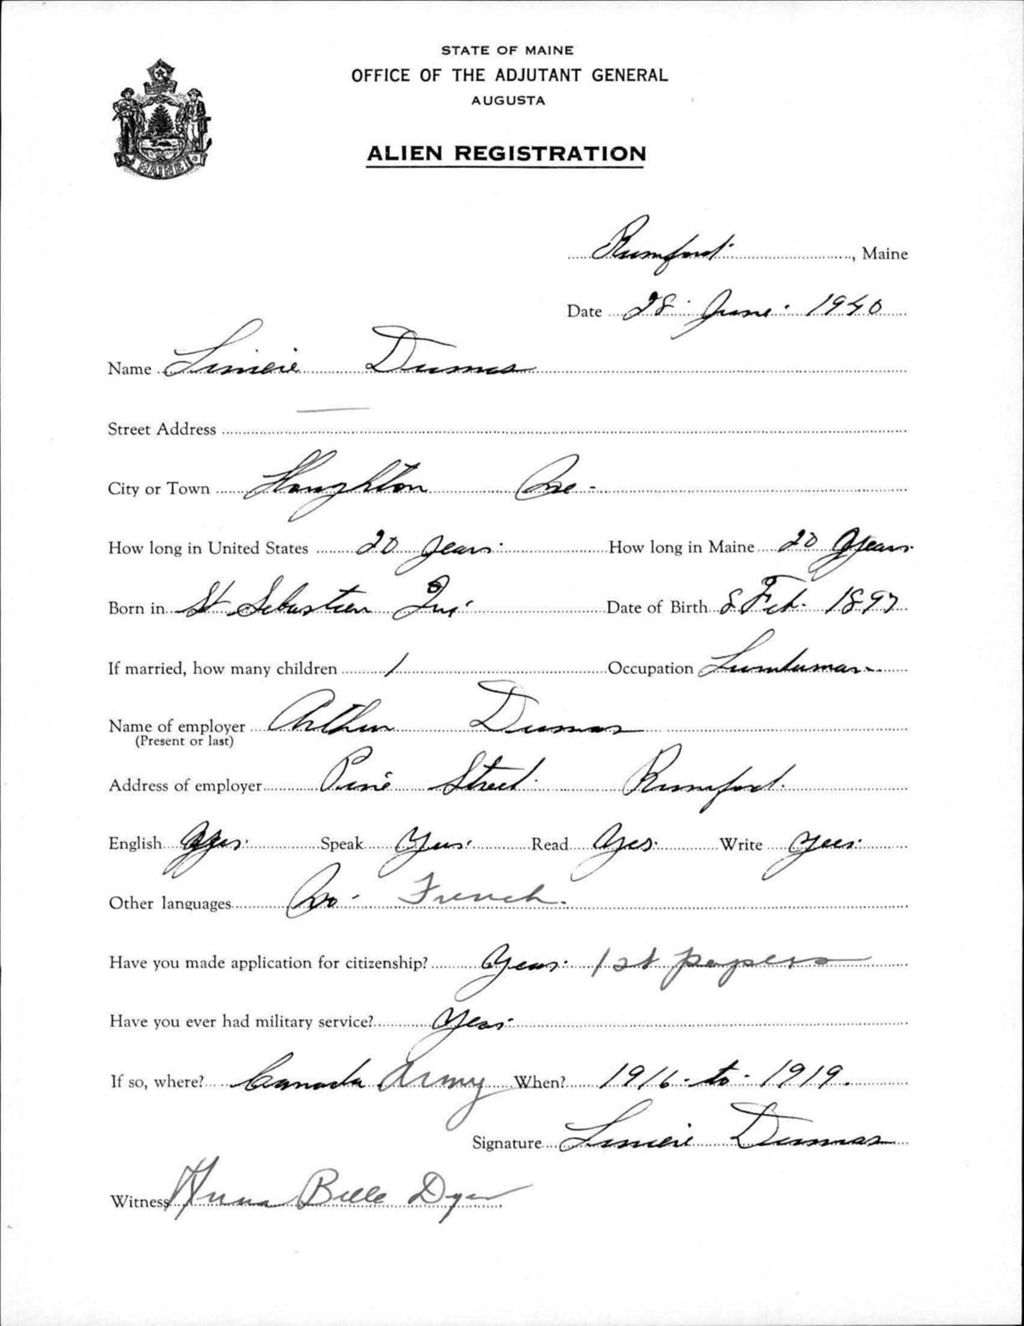 STATE OF MAINE
OFFICE OF THE ADJUTANT GENERAL
AUGUSTA
ALIEN REGISTRATION
MAINE
Rumford, Maine
Date 28 June 1940
Name Dumas
Street Address —
City or Town Houghton Me -
How long in United States 20 years. How long in Maine 20 years.
Born in St Sebastien Que. Date of Birth 8 Feb. 1897
If married, how many children 1 Occupation
Name of employer Arthur Dumas
(Present or last)
Address of employer Pine Street. Rumford.
English Yes. Speak Yes. Read Yes. Write Yes.
Other languages No - French.
Have you made application for citizenship? Yes. 1st papers
Have you ever had military service? Yes.
If so, where? Canada Army When? 1916 - to - 1919.
Signature Dumas
Witness Anna Belle Dyer